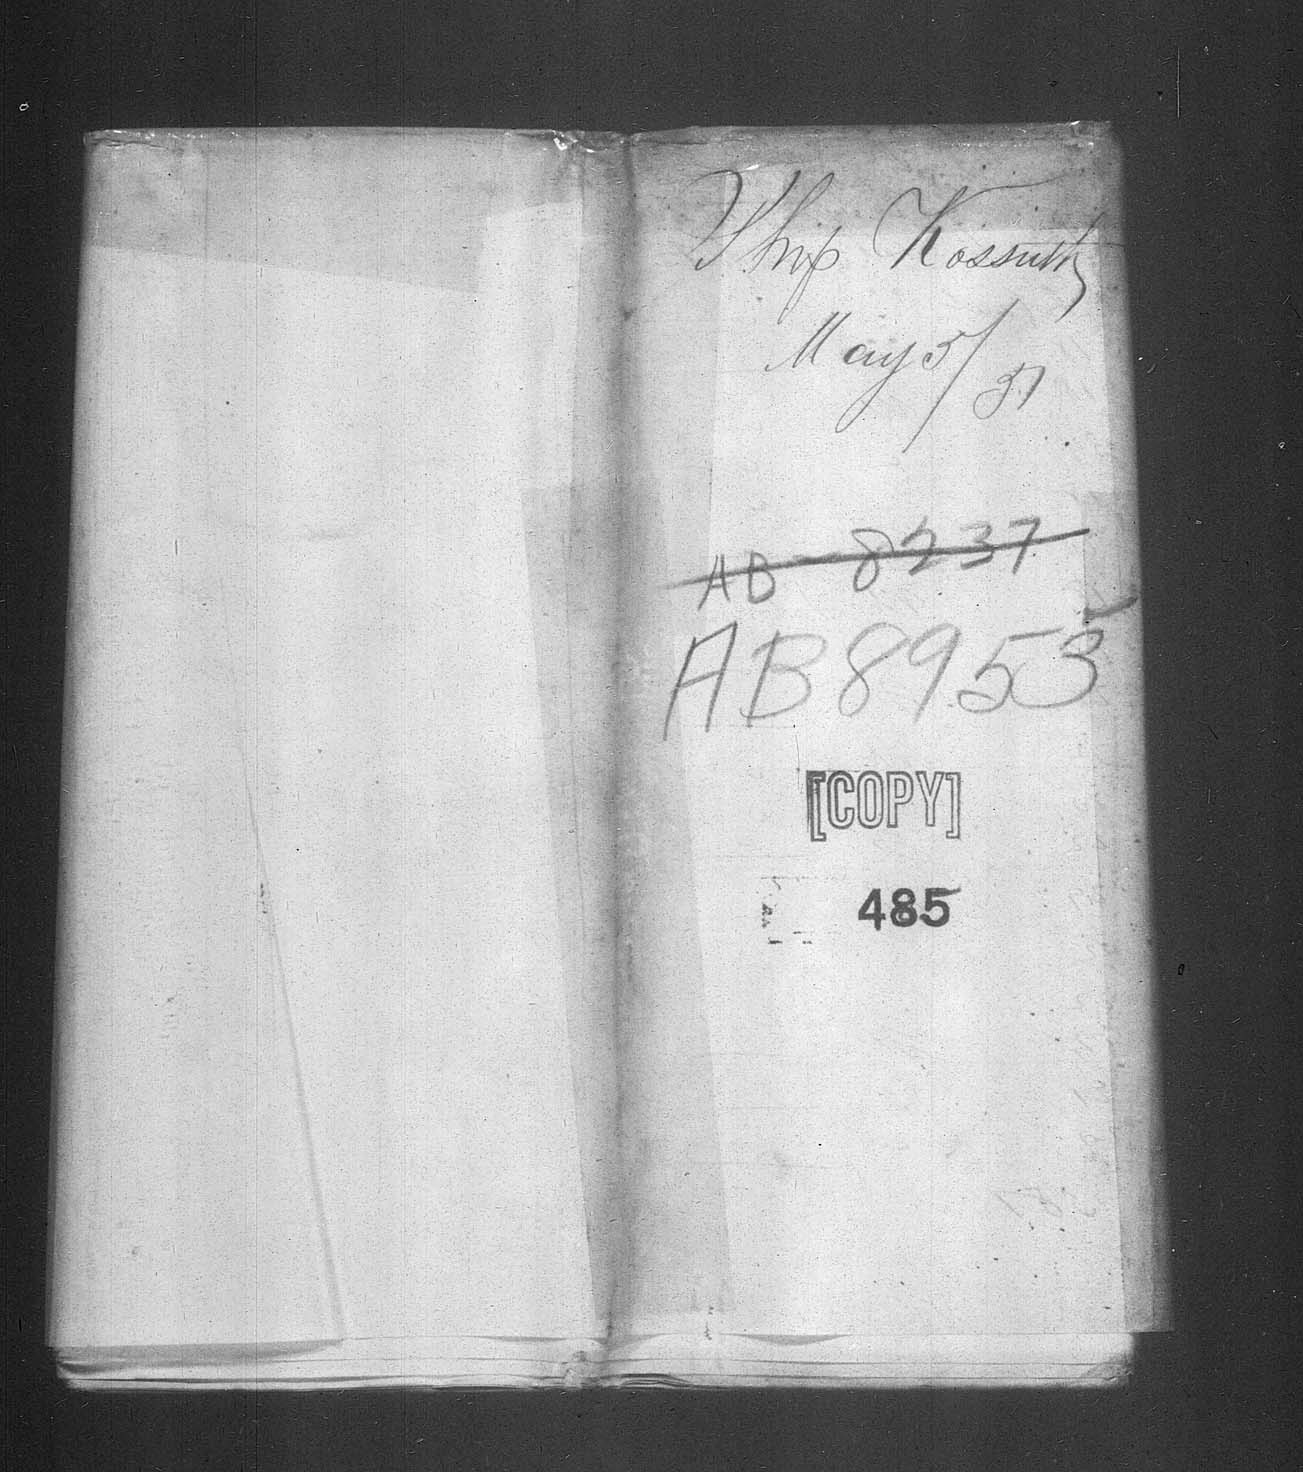 Ship Kossuth
May 5/51
AB 8237
AB 8953
[COPY]
485